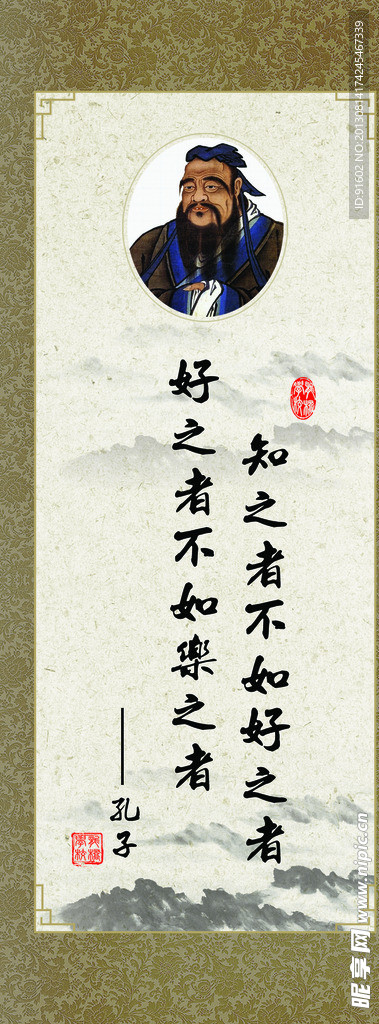 知之者不如好之者
好之者不如樂之者
——孔子
ID:91602 NO:20130814174245467339
昵享网 www.nipic.cn